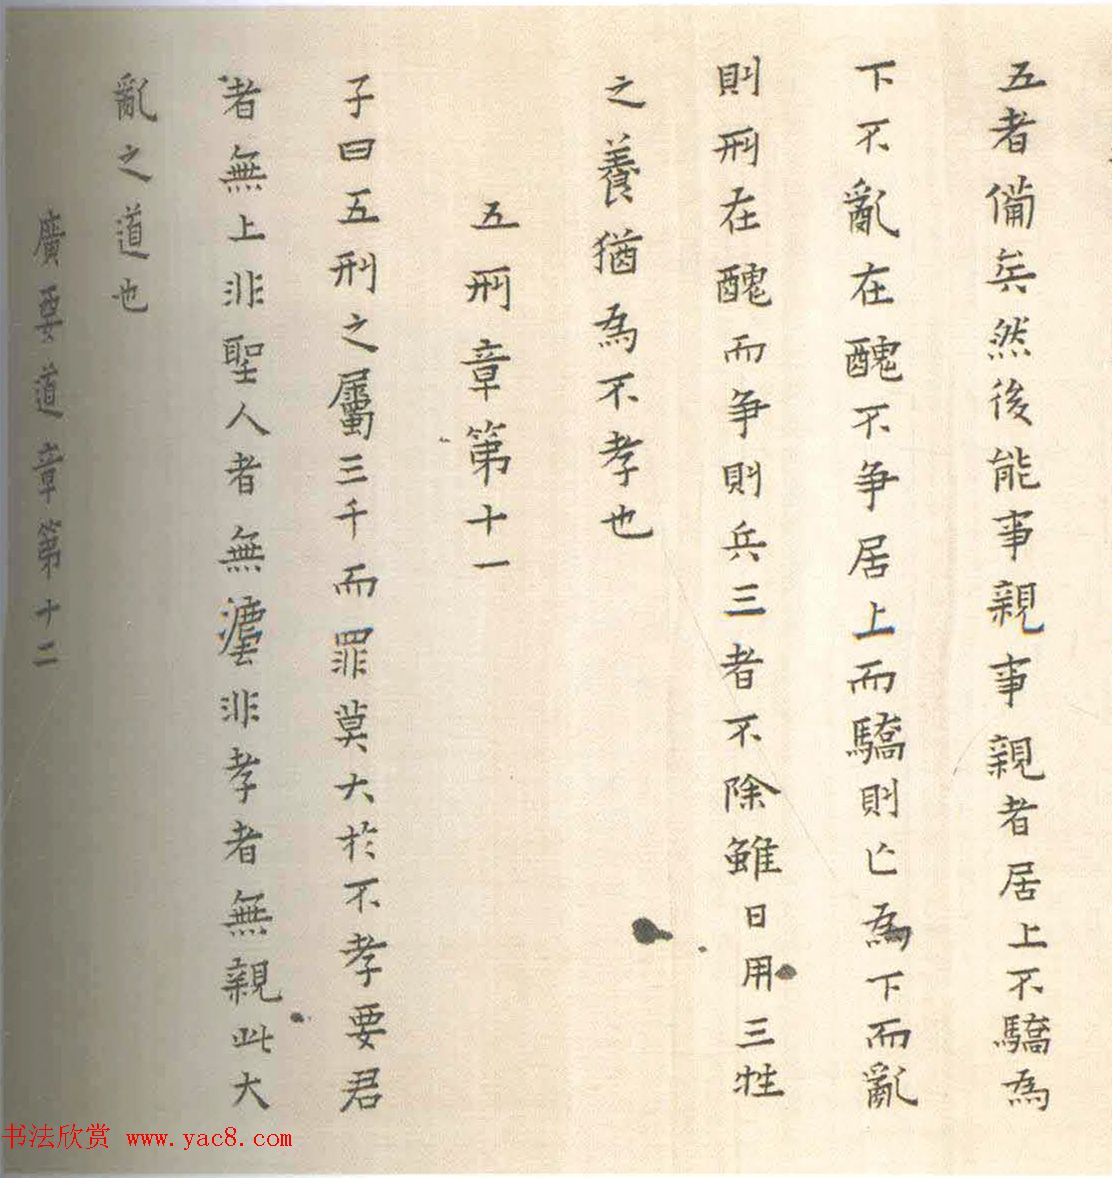 五者備矣然後能事親事親者居上不驕為
下不亂在醜不爭居上而驕則亡為下而亂
則刑在醜而爭則兵三者不除雖日用三牲
之養猶為不孝也
五刑章第十一
子曰五刑之屬三千而罪莫大於不孝要君
者無上非聖人者無灋非孝者無親此大
亂之道也
廣要道章第十二
书法欣赏 www.yac8.com